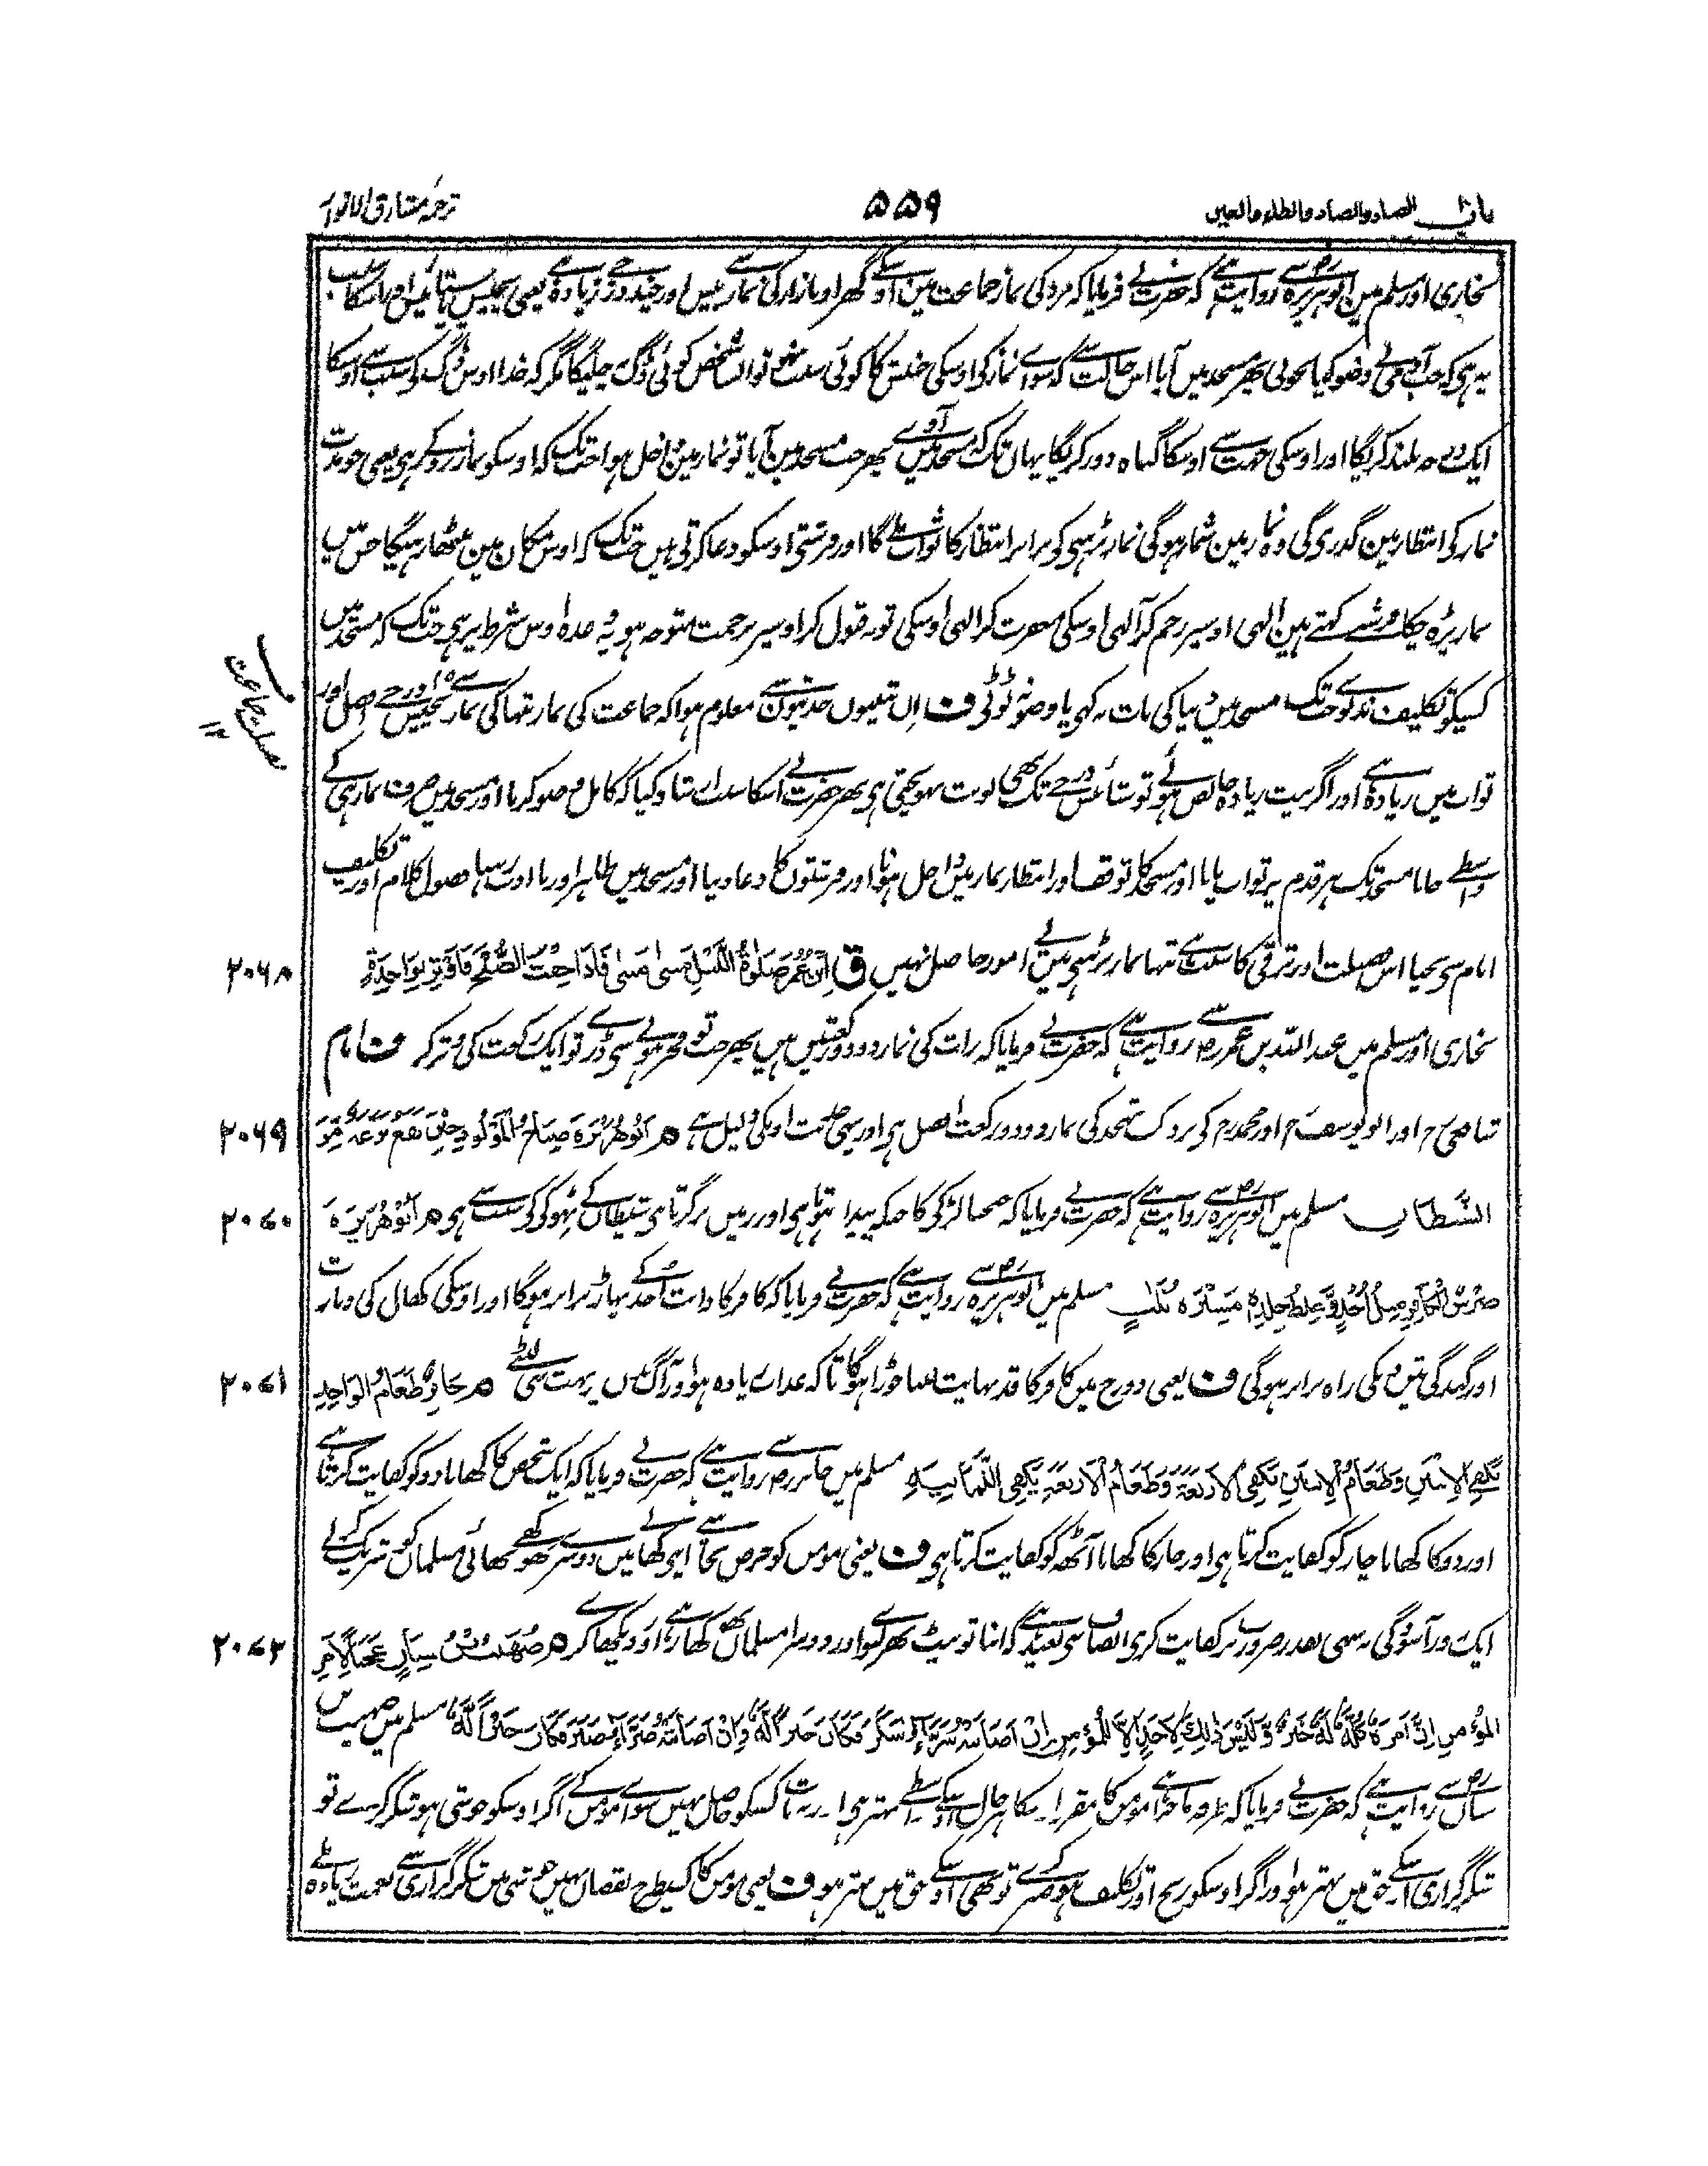 باب الصاد والضاد والطاء والعین
۵۵۹
ترجمہ مشارق الانوار
بخاری اور مسلم میں ابو ہریرہ رض سے روایت ہے کہ حضرت نے فرمایا کہ مرد کی نماز جماعت مین اوسکے گھر اور بازار کی نماز سے بیس اور چند درجے زیادہ ہے یعنی پچیس یا ستائیس اور اسکا سبب
یہ ہی کہ جب آدمی نے وضو کیا بخوبی پھر مسجد میں آیا اس حالت سے کہ سوائے نماز کی اوسکی جنبش کا کوئی سبب نہو تو ایسا شخص کوئی ڈگ نہ چلیگا مگر کہ خدا اوس ڈگ کی سبب سے اوسکا
ایک درجہ بلند کریگا اور اوسکی جہت سے اوسکا گناہ دور کریگا یہاں تک کہ مسجد میں آوے پھر جب مسجد مین آیا تو نماز مین داخل ہوا جب تک کہ اوسکو نماز روکے رہی یعنی جو مدت
نماز کی انتظار مین گذری گی وہ نماز مین شمار ہوگی نماز پڑہنی کی برابر انتظار کا ثواب ملے گا اور فرشتی اوسکو دعا کرتی ہیں جب تک کہ اوس مکان مین بیٹھا رہیگا جس میں
نماز پڑہ چکا فرشتے کہتے ہین الٰہی اوسپر رحم کر الٰہی اوسکی مغفرت کر الٰہی اوسکی توبہ قبول کر اوسپر رحمت متوجہ ہو یہ وعدہ اوس شرط پر ہی جب تک کہ مسجد میں
کسیکو تکلیف ندے جب تک مسجد میں دنیا کی بات نہ کہی یا وضو نہ ٹوٹی ف ان تینوں حدیثون سے معلوم ہوا کہ جماعت کی نماز تنہا کی نماز سے پچیس درجے افضل اور
ثواب میں زیادہ ہے اور اگر نیت زیادہ خالص ہوئے تو ستائس درجے تک بھی نوبت پہونچتی ہی پھر حضرت نے اسکا سبب ارشاد کیا کہ کامل وضو کرنا اور مسجد میں صرف نماز ہی کے
واسطے جانا مسجد تک ہر قدم پر ثواب پانا اور مسجد کا توقف اور انتظار نماز میں داخل ہونا اور فرشتوں کا دعا دینا اور مسجد میں طاہر اور با ادب رہنا فضول کلام اور تکلیف
امام سی بچنا اس فضیلت اور ترقی کا سبب ہے تنہا نماز پڑہنی میں یے امور حاصل نہیں ق ابْنُ عُمَرَ صَلٰوةُ اللَّيْلِ مَثْنٰى مَثْنٰى فَاِذَا خِفْتَ الصُّبْحَ فَاَوْتِرْ بِوَاحِدَةٍ
۲۰۶۸
بخاری اور مسلم میں عبد اللہ بن عمر رض سے روایت ہے کہ حضرت نے فرمایا کہ رات کی نماز دو دو رکعتیں ہیں پھر جب تو فجر ہونے سی ڈرے تو ایک رکعت کی وتر کر ف امام
شافعی رح اور ابو یوسف رح اور محمد رح کی نزدیک تہجد کی نماز دو دو رکعت افضل ہی اور یہی حدیث اونکی دلیل ہے م اَبُوْهُرَيْرَةَ صِيَاحُ الْمَوْلُوْدِ حِيْنَ يَقَعُ نَزْغَةٌ مِّنَ
۲۰۶۹
الشَّيْطَانِ مسلم میں ابو ہریرہ رض سے روایت ہے کہ حضرت نے فرمایا کہ چیخنا لڑکی کا جبکہ پیدا ہوتا ہی اور زمین پر گرتا ہی شیطان کے ٹہوکی کی سبب سے ہی م اَبُوْهُرَيْرَةَ
۲۰۷۰
ضِرْسُ الْكَافِرِ مِثْلُ اُحُدٍ وَّغِلَظُ جِلْدِهٖ مَسِيْرَةُ ثَلٰثٍ مسلم میں ابو ہریرہ رض سے روایت ہے کہ حضرت نے فرمایا کہ کافر کا دانت احد کے پہاڑ برابر ہوگا اور اوسکی کھال کی دبازت
اور گندگی تین دن کی راہ برابر ہوگی ف یعنی دوزخ میں کافر کا قد نہایت لنبا چوڑا ہوگا تاکہ عذاب زیادہ ہو اور آگ میں بہت سی لپٹے م جَابِرٌ طَعَامُ الْوَاحِدِ
۲۰۷۱
يَكْفِي الِاثْنَيْنِ وَطَعَامُ الِاثْنَيْنِ يَكْفِي الْاَرْبَعَةَ وَطَعَامُ الْاَرْبَعَةِ يَكْفِي الثَّمَانِيَةَ مسلم میں جابر رض سے روایت ہے کہ حضرت نے فرمایا کہ ایک شخص کا کھانا دو کو کفایت کرتا ہے
اور دو کا کھانا چار کو کفایت کرتا ہی اور چار کا کھانا آٹھ کو کفایت کرتا ہی ف یعنی مومن کو حرص نچاہیے اپنی کھانے میں دوسرے بھوکھے بھائی مسلمان کو شریک کر لے
ایک دو آسودگی نہ سہی بقدر ضرورت کفایت کری انصاف سی بعید ہے کہ اپنا تو پیٹ بھر لیوے اور دوسرا مسلمان بھوکھا رہے اور دیکھا کرے م صُهَيْبُ بْنُ سِنَانٍ عَجَبًا لِّاَمْرِ
۲۰۷۲
الْمُؤْمِنِ اِنَّ اَمْرَهٗ كُلَّهٗ لَهٗ خَيْرٌ وَّلَيْسَ ذٰلِكَ لِاَحَدٍ اِلَّا لِلْمُؤْمِنِ اِنْ اَصَابَتْهُ سَرَّآءُ شَكَرَ فَكَانَ خَيْرًا لَّهٗ وَاِنْ اَصَابَتْهُ ضَرَّآءُ صَبَرَ فَكَانَ خَيْرًا لَّهٗ مسلم میں صہیب بن
سنان رض سے روایت ہے کہ حضرت نے فرمایا کہ طرفہ ماجرا ہے مومن کا مقرر اسکا ہر حال اوسکے واسطے بہتر ہی اور یہ بات کسیکو حاصل نہیں سوائے مومن کے اگر اوسکو خوشی ہو شکر کرے تو
شکر گزاری اسکے حق میں بہتر ہو اور اگر اوسکو رنج اور تکلیف ہو صبر کرے تو بھی اوسکے حق میں بہتر ہو ف یعنی مومن کا کسیطرح نقصان نہیں خوشی میں شکر گزاری سے نعمت زیادہ ملے
فضیلت جماعت ۱۲